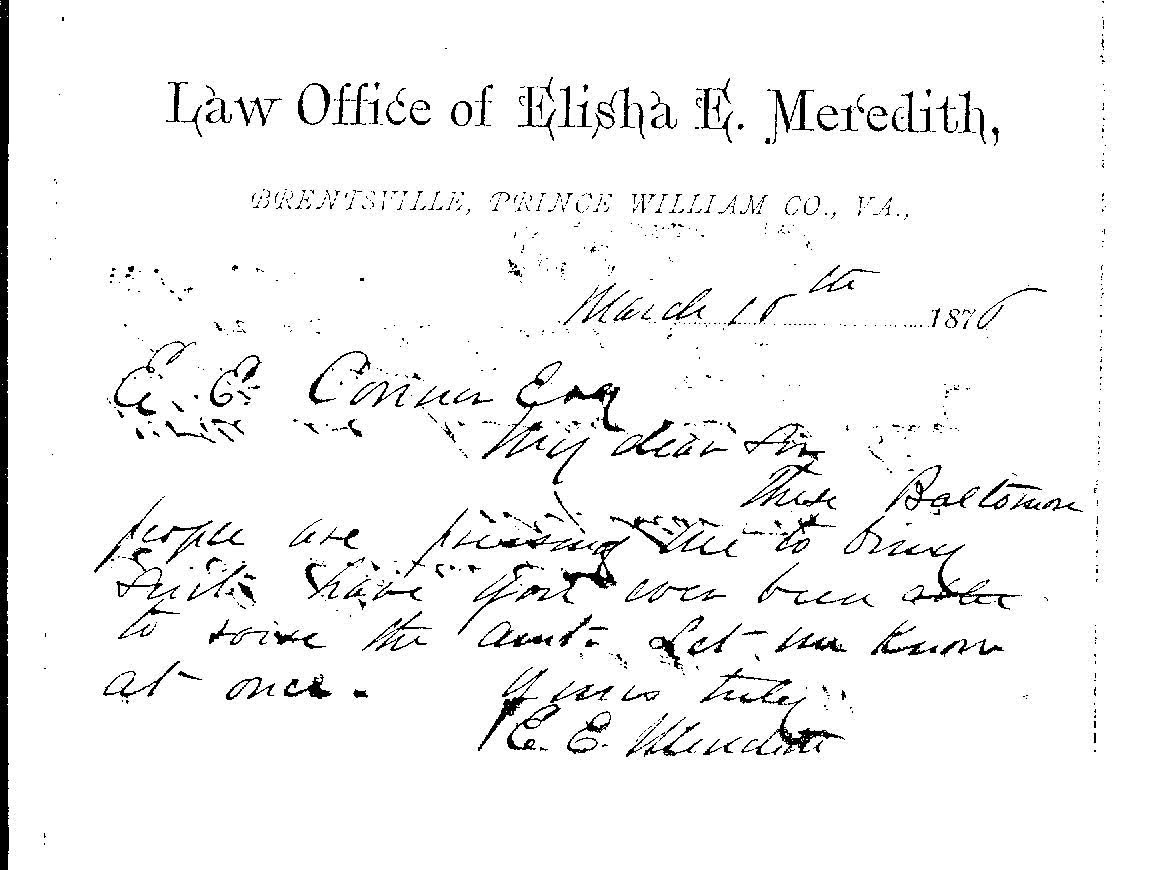 Law Office of Elisha E. Meredith,
BRENTSVILLE, PRINCE WILLIAM CO., VA.,
March 10th 1876
E. E. Conner Esq
My dear Sir
These Baltimore
people are pressing me to bring
suit. have you ever been able
to raise the amt. Let me know
at once. Yours truly
E. E. Meredith